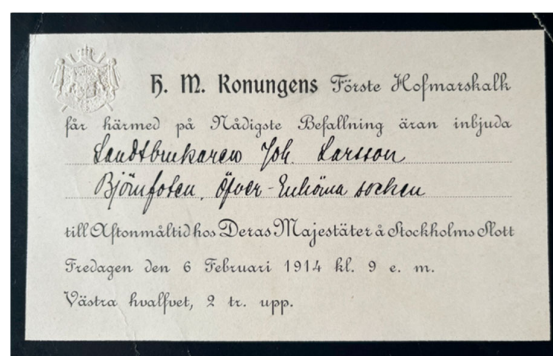 H. M. Konungens Förste Hofmarskalk
får härmed på Nådigste Befallning äran inbjuda
Landtbrukaren Joh. Larsson
Björnfoten, Öfver-Enhörna socken
till Aftonmåltid hos Deras Majestäter å Stockholms Slott
Fredagen den 6 Februari 1914 kl. 9 e. m.
Västra hvalfvet, 2 tr. upp.